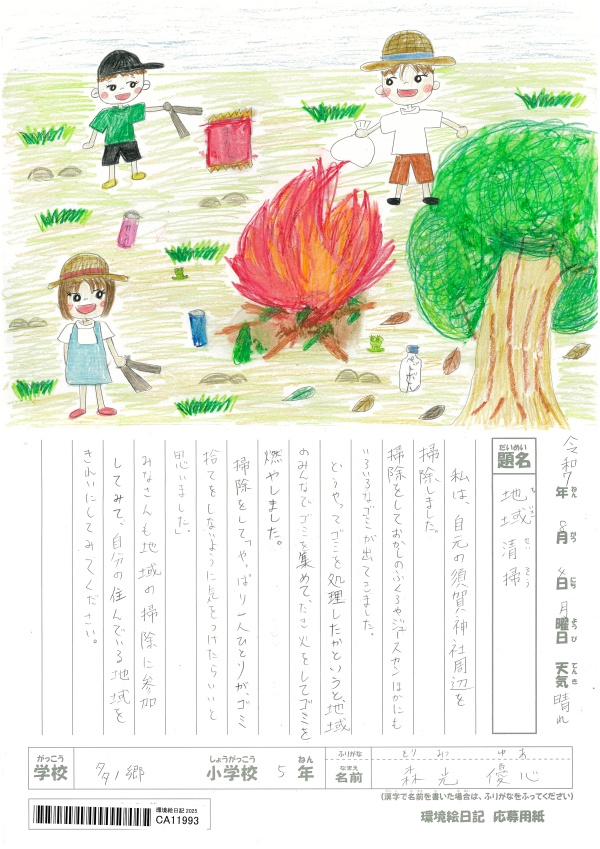 ペットボトル
令和7年 8月 4日 月曜日 天気 晴れ
ねん がつ にち ようび てんき
だいめい
題名
地域清掃
ちいき せいそう
私は、自元の須賀神社周辺を
掃除しました。
掃除をしておかしのふくろやジュースやカンほかにも
いろいろなゴミが出てきました。
どうやってゴミを処理したかというと、地域
のみんなでゴミを集めて、たき火をしてゴミを
燃やしました。
掃除をして「やっぱり一人ひとりが、ゴミ
捨てをしないように気をつけたらいいと
思いました」
みなさんも地域の掃除に参加
してみて、自分の住んでいる地域を
きれいにしてみてください。
がっこう しょうがっこう ねん
学校 多ノ郷 小学校 5年
ふりがな とりみつ ゆあ
なまえ
名前 森光 優心
(漢字で名前を書いた場合は、ふりがなをふってください)
環境絵日記 2025
CA11993
環境絵日記 応募用紙